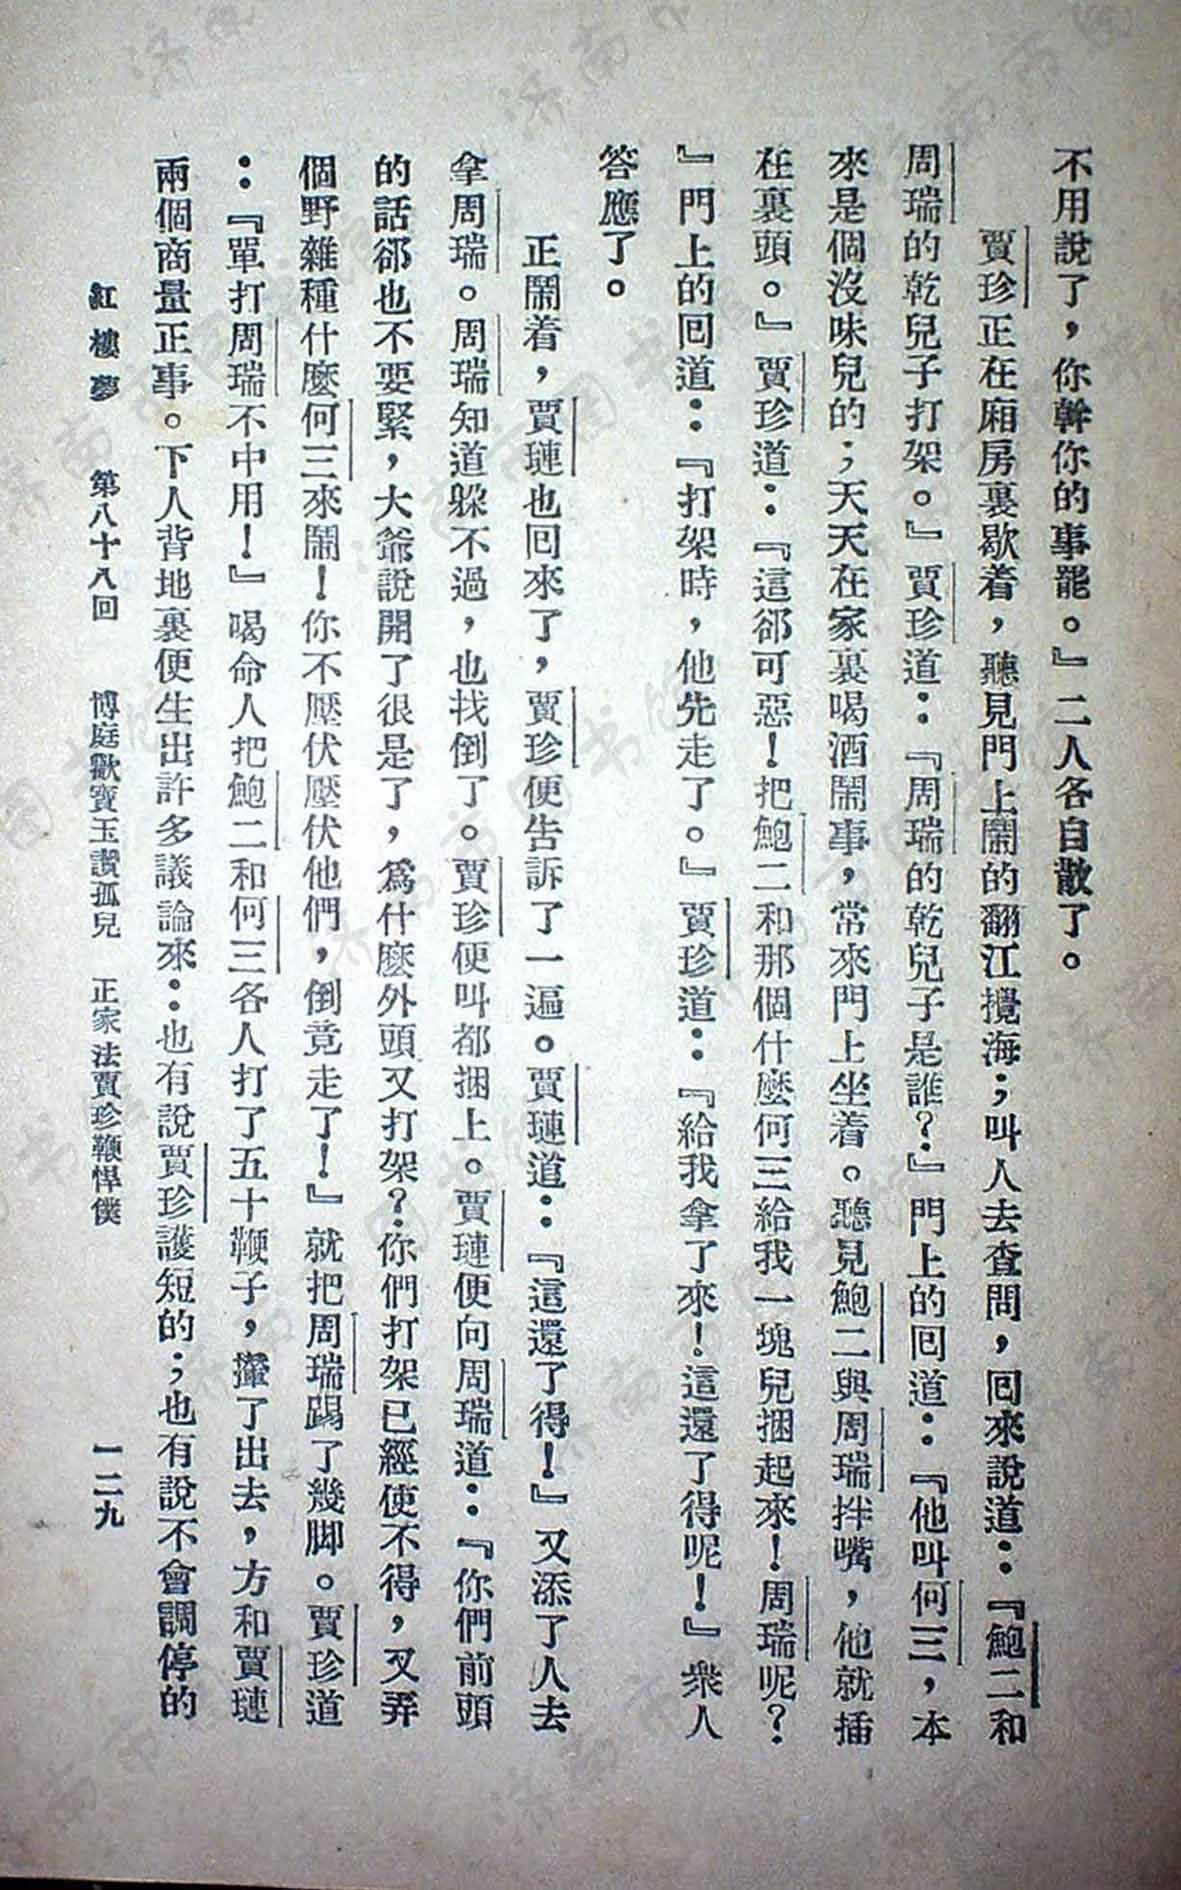 不用說了，你幹你的事罷。』二人各自散了。
賈珍正在廂房裏歇着，聽見門上鬧的翻江攪海；叫人去查問，回來說道：『鮑二和
周瑞的乾兒子打架。』賈珍道：『周瑞的乾兒子是誰？』門上的回道：『他叫何三，本
來是個沒味兒的；天天在家裏喝酒鬧事，常來門上坐着。聽見鮑二與周瑞拌嘴，他就插
在裏頭。』賈珍道：『這郤可惡！把鮑二和那個什麼何三給我一塊兒捆起來！周瑞呢？
』門上的回道：『打架時，他先走了。』賈珍道：『給我拿了來！這還了得呢！』衆人
答應了。
正鬧着，賈璉也回來了，賈珍便告訴了一遍。賈璉道：『這還了得！』又添了人去
拿周瑞。周瑞知道躲不過，也找倒了。賈珍便叫都捆上。賈璉便向周瑞道：『你們前頭
的話郤也不要緊，大爺說開了很是了，爲什麽外頭又打架？你們打架已經使不得，又弄
個野雜種什麽何三來鬧！你不壓伏壓伏他們，倒竟走了！』就把周瑞踢了幾脚。賈珍道
：『單打周瑞不中用！』喝命人把鮑二和何三各人打了五十鞭子，攆了出去，方和賈璉
兩個商量正事。下人背地裏便生出許多議論來：也有說賈珍護短的；也有說不會調停的
紅樓夢　第八十八回　博庭歡寶玉讚孤兒　正家法賈珍鞭悍僕　一二九